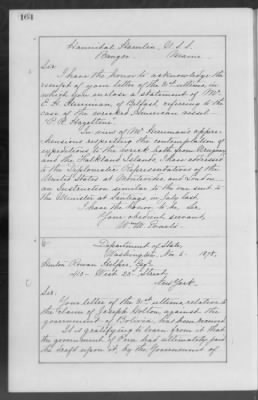 164
Hannibal Hamlin, U.S.S.
Bangor Maine
Sir:
I have the honor to acknowledge the
receipt of your letter of the 31st ultimo, in
which you enclose a statement of Mr.
E. H. Herriman, of Belfast, referring to the
case of the wrecked American vessel
"C. B. Hazeltine".
In view of Mr. Herriman's appre-
hensions respecting the contemplation of
expeditions to the wreck both from Uruguay
and the Falkland Islands, I have addressed
to the Diplomatic Representatives of the
United States at Montevideo and London
an Instruction similar to the one sent to
the Minister at Santiago, in July last.
I have the honor to be, Sir,
Your obedient servant,
Wm. M. Evarts.
Department of State,
Washington, Nov 6. 1878.
Hinton Rowan Helper, Esqr.
West 23d Street,
New York.
Sir:
Your letter of the 31st ultimo, relative to
the claim of Joseph against the
government of Bolivia, has been received.
It is gratifying to learn from it that
the government of Peru had ultimately paid
the draft upon it, by the Government of